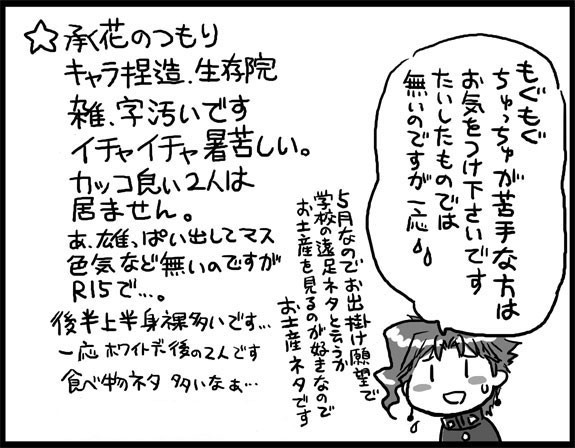 ☆承花のつもり
キャラ捏造、生存院
雑、字汚いです
イチャイチャ暑苦しい。
カッコ良い2人は
居ません。
あ、雄っぱい出してマス
色気など無いのですが
R15で…。
後半上半身裸多いです…
一応ホワイトデー後の2人です
食べ物ネタ 多いなぁ…
もぐもぐ
ちゅっちゅが苦手な方は
お気をつけ下さいです
たいしたものでは
無いのですが一応
5月なのでお出掛け願望で
学校の遠足ネタと云うか
お土産を見るのが好きなので
お土産ネタです